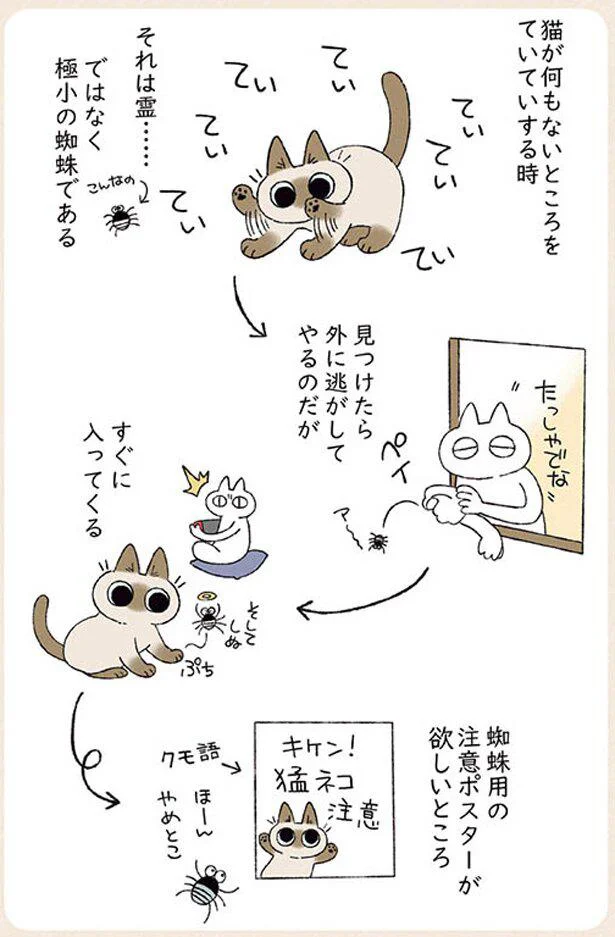 猫が何もないところを
ていていする時
てぃ
てぃ
てぃ
てぃ
てぃ
てぃ
てぃ
それは霊……
ではなく
極小の蜘蛛である
こんなの
見つけたら
外に逃がして
やるのだが
"たっしゃでな"
ペイ
アー
すぐに
入ってくる
そして
しぬ
ぷち
蜘蛛用の
注意ポスターが
欲しいところ
キケン!
猛ネコ
注意
クモ語
ほーん
やめとこ